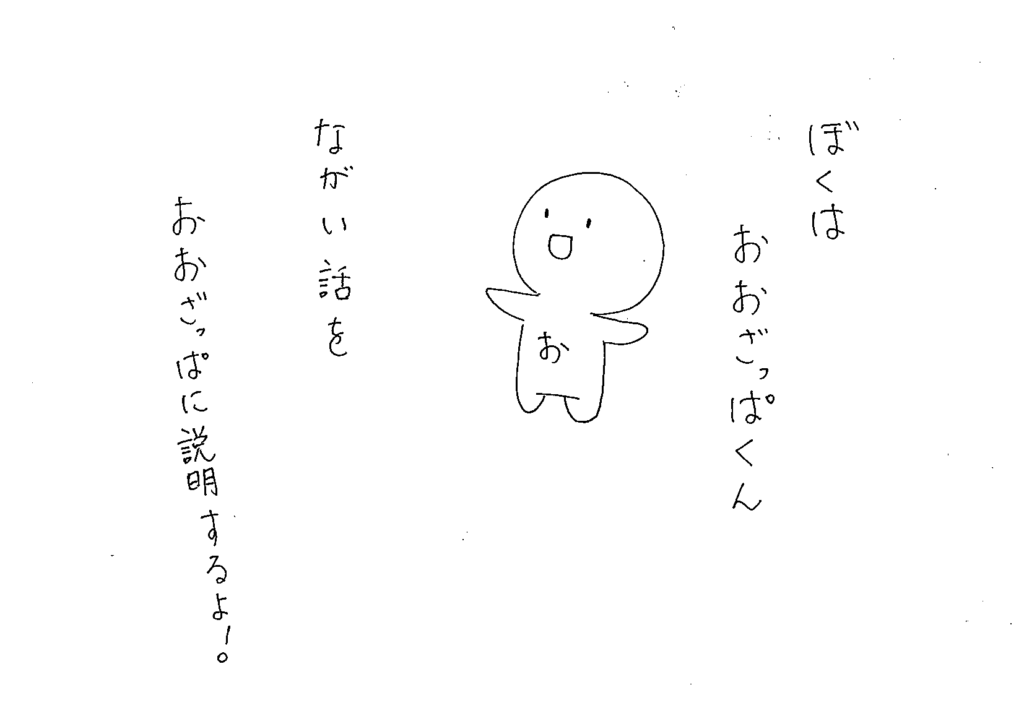 ぼくは
おおざっぱくん
お
ながい話を
おおざっぱに説明するよ!